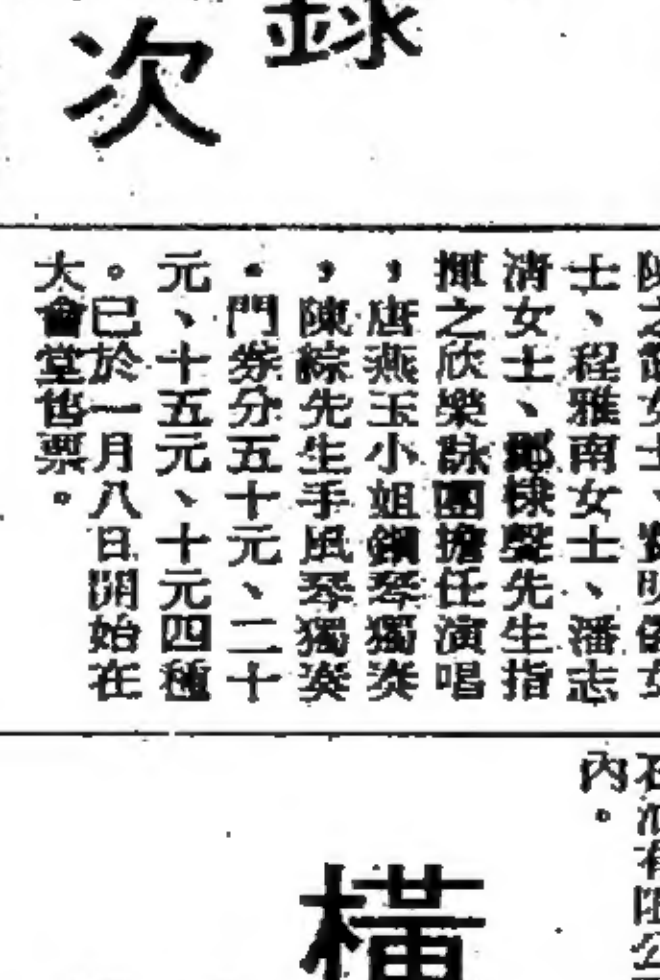 錄
次
士、程雅南女士、潘志
清女士、鄭棣聲先生指
揮之欣樂詠團擔任演唱
，唐燕玉小姐鋼琴獨奏
，陳綜先生手風琴獨奏
。門券分五十元、二十
元、十五元、十元四種
。已於一月八日開始在
大會堂售票。
內。
橫